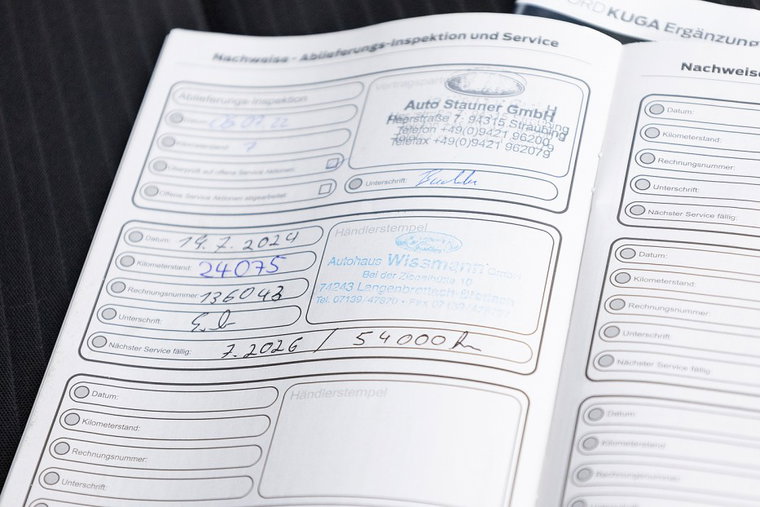 FORD KUGA Ergänzung
Nachweise - Ablieferungs-Inspektion und Service
Ablieferungs-Inspektion
Datum:
Kilometerstand:
Überprüft auf offene Service Aktionen:
Offene Service Aktionen abgearbeitet
Vertragspartner
Auto Stauner GmbH
94315 Straubing
Telefon +49(0)9421 96200
Telefax +49(0)9421 962079
Unterschrift:
Datum: 19.7.2024
Kilometerstand: 24075
Rechnungsnummer: 136043
Unterschrift:
Nächster Service fällig: 7.2026 / 54000 km
Händlerstempel
Autohaus Wissmann GmbH
Bei der Ziegelhütte 10
74243 Langenbrettach-
Tel. 07139/47870 • Fax 07139/
Datum:
Kilometerstand:
Rechnungsnummer:
Unterschrift:
Händlerstempel
Nachweise
Datum:
Kilometerstand:
Rechnungsnummer:
Unterschrift:
Nächster Service fällig:
Datum:
Kilometerstand:
Rechnungsnummer:
Unterschrift
Nächster Service fällig
Datum:
Kilometerstand
Rechnungsnummer:
Unterschrift